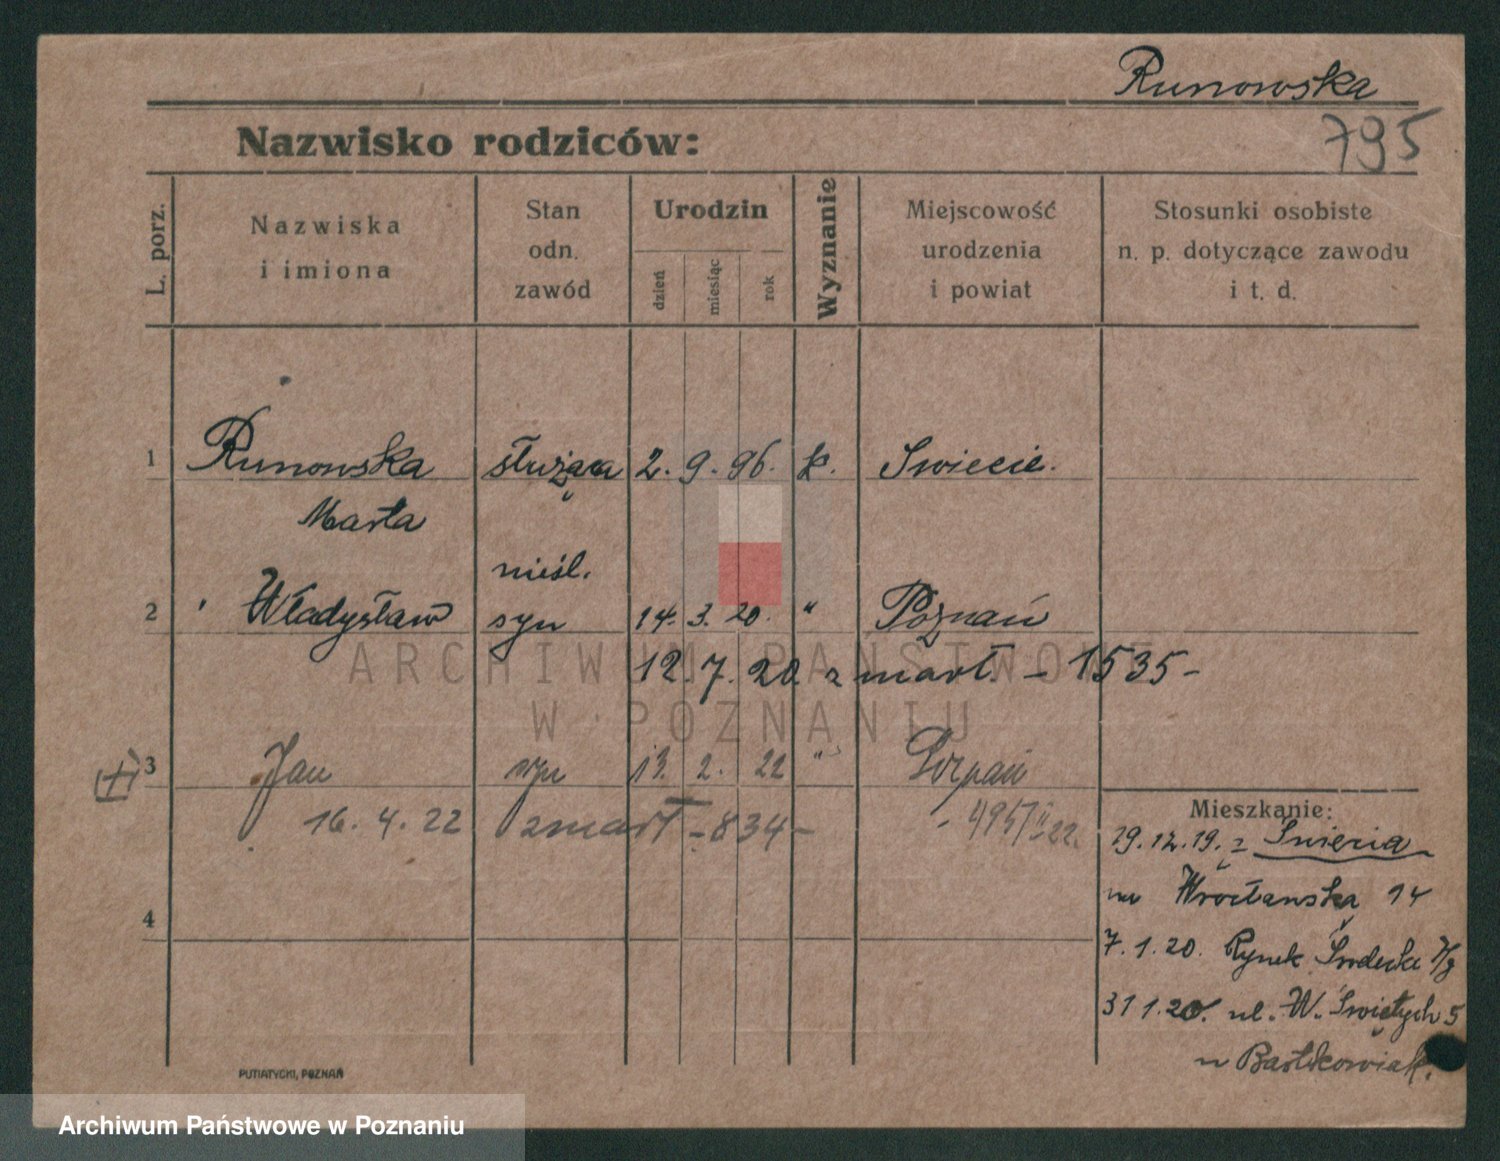 Runowska
795
Nazwisko rodziców:
L. porz.
Nazwiska
i imiona
Stan
odn.
zawód
Urodzin
dzień
miesiąc
rok
Wyznanie
Miejscowość
urodzenia
i powiat
Stosunki osobiste
n. p. dotyczące zawodu
i t. d.
1 Runowska służąca 2. 9. 96. k. Swiecie.
Marta
nieśl.
2 Władysław syn 14. 3. 20. " Poznań
12. 7. 20 zmarł. - 1535 -
3 Jan syn 13. 2. 22 "
16. 4. 22 zmarł - 834 -
4
Mieszkanie:
19. 12. 19. z Świecia
na Wrocławską 14
7. 1. 20. Rynek Śródecki
31 1. 20. ul. W. Świętych 5
u Bartkowiak.
PUTIATYCKI, POZNAŃ
ARCHIWUM PAŃSTWOWE
W POZNANIU
Archiwum Państwowe w Poznaniu